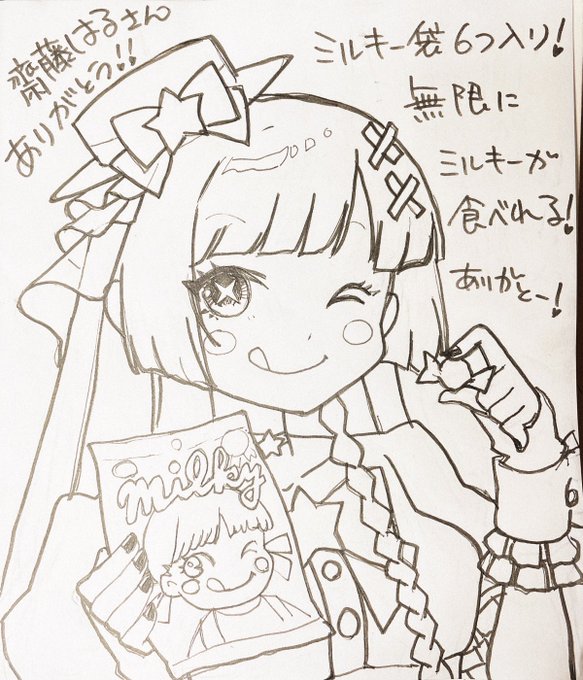 齋藤はるさん
ありがとう!!
ミルキー袋6つ入り!
無限に
ミルキーが
食べれる!
ありがとー!
milky
6